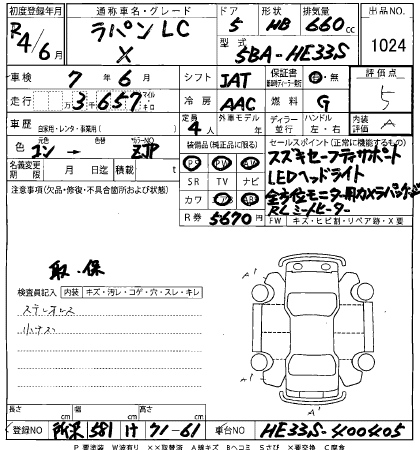 初度登録年月 通称車名・グレード ドア 形状 排気量 出品NO.
R4/6月 ラパン LC X 5 HB 660cc 1024
型式 5BA-HE33S
車検 7年6月 シフト IAT 保証書 有・無 評価点 5
走行 万3千657 マイル キロ 冷房 AAC 燃料 G
車歴 自家用・レンタ・事業用( ) 定員 4人 外車モデル年 ディーラー 並行 ハンドル 左・右 内装 A
色 元色 → カラーNO. ZJP 装備品(純正品に限る) セールスポイント(正常に機能するもの)
名義変更期限 月 日迄 積載 t PS PW AW スズキセーフティサポート
注意事項(欠品・修復・不具合箇所および状態) SR TV ナビ LEDヘッドライト
カワ AB 全方位モニター用カメラパッケージ
R券 5670円 シートヒーター
FW キズ・ヒビ割・リペア跡・X要
取.保
検査員記入 内装 キズ・汚レ・コゲ・穴・スレ・キレ
ステレオレス
小キズ
A' A' A'
長さ cm 幅 cm 高さ cm
登録NO 所沢 581 け 71-61 車台NO HE33S-400405
P 要塗装 W波有り XX取替済 A線キズ Bヘコミ Sさび X要交換 C腐食